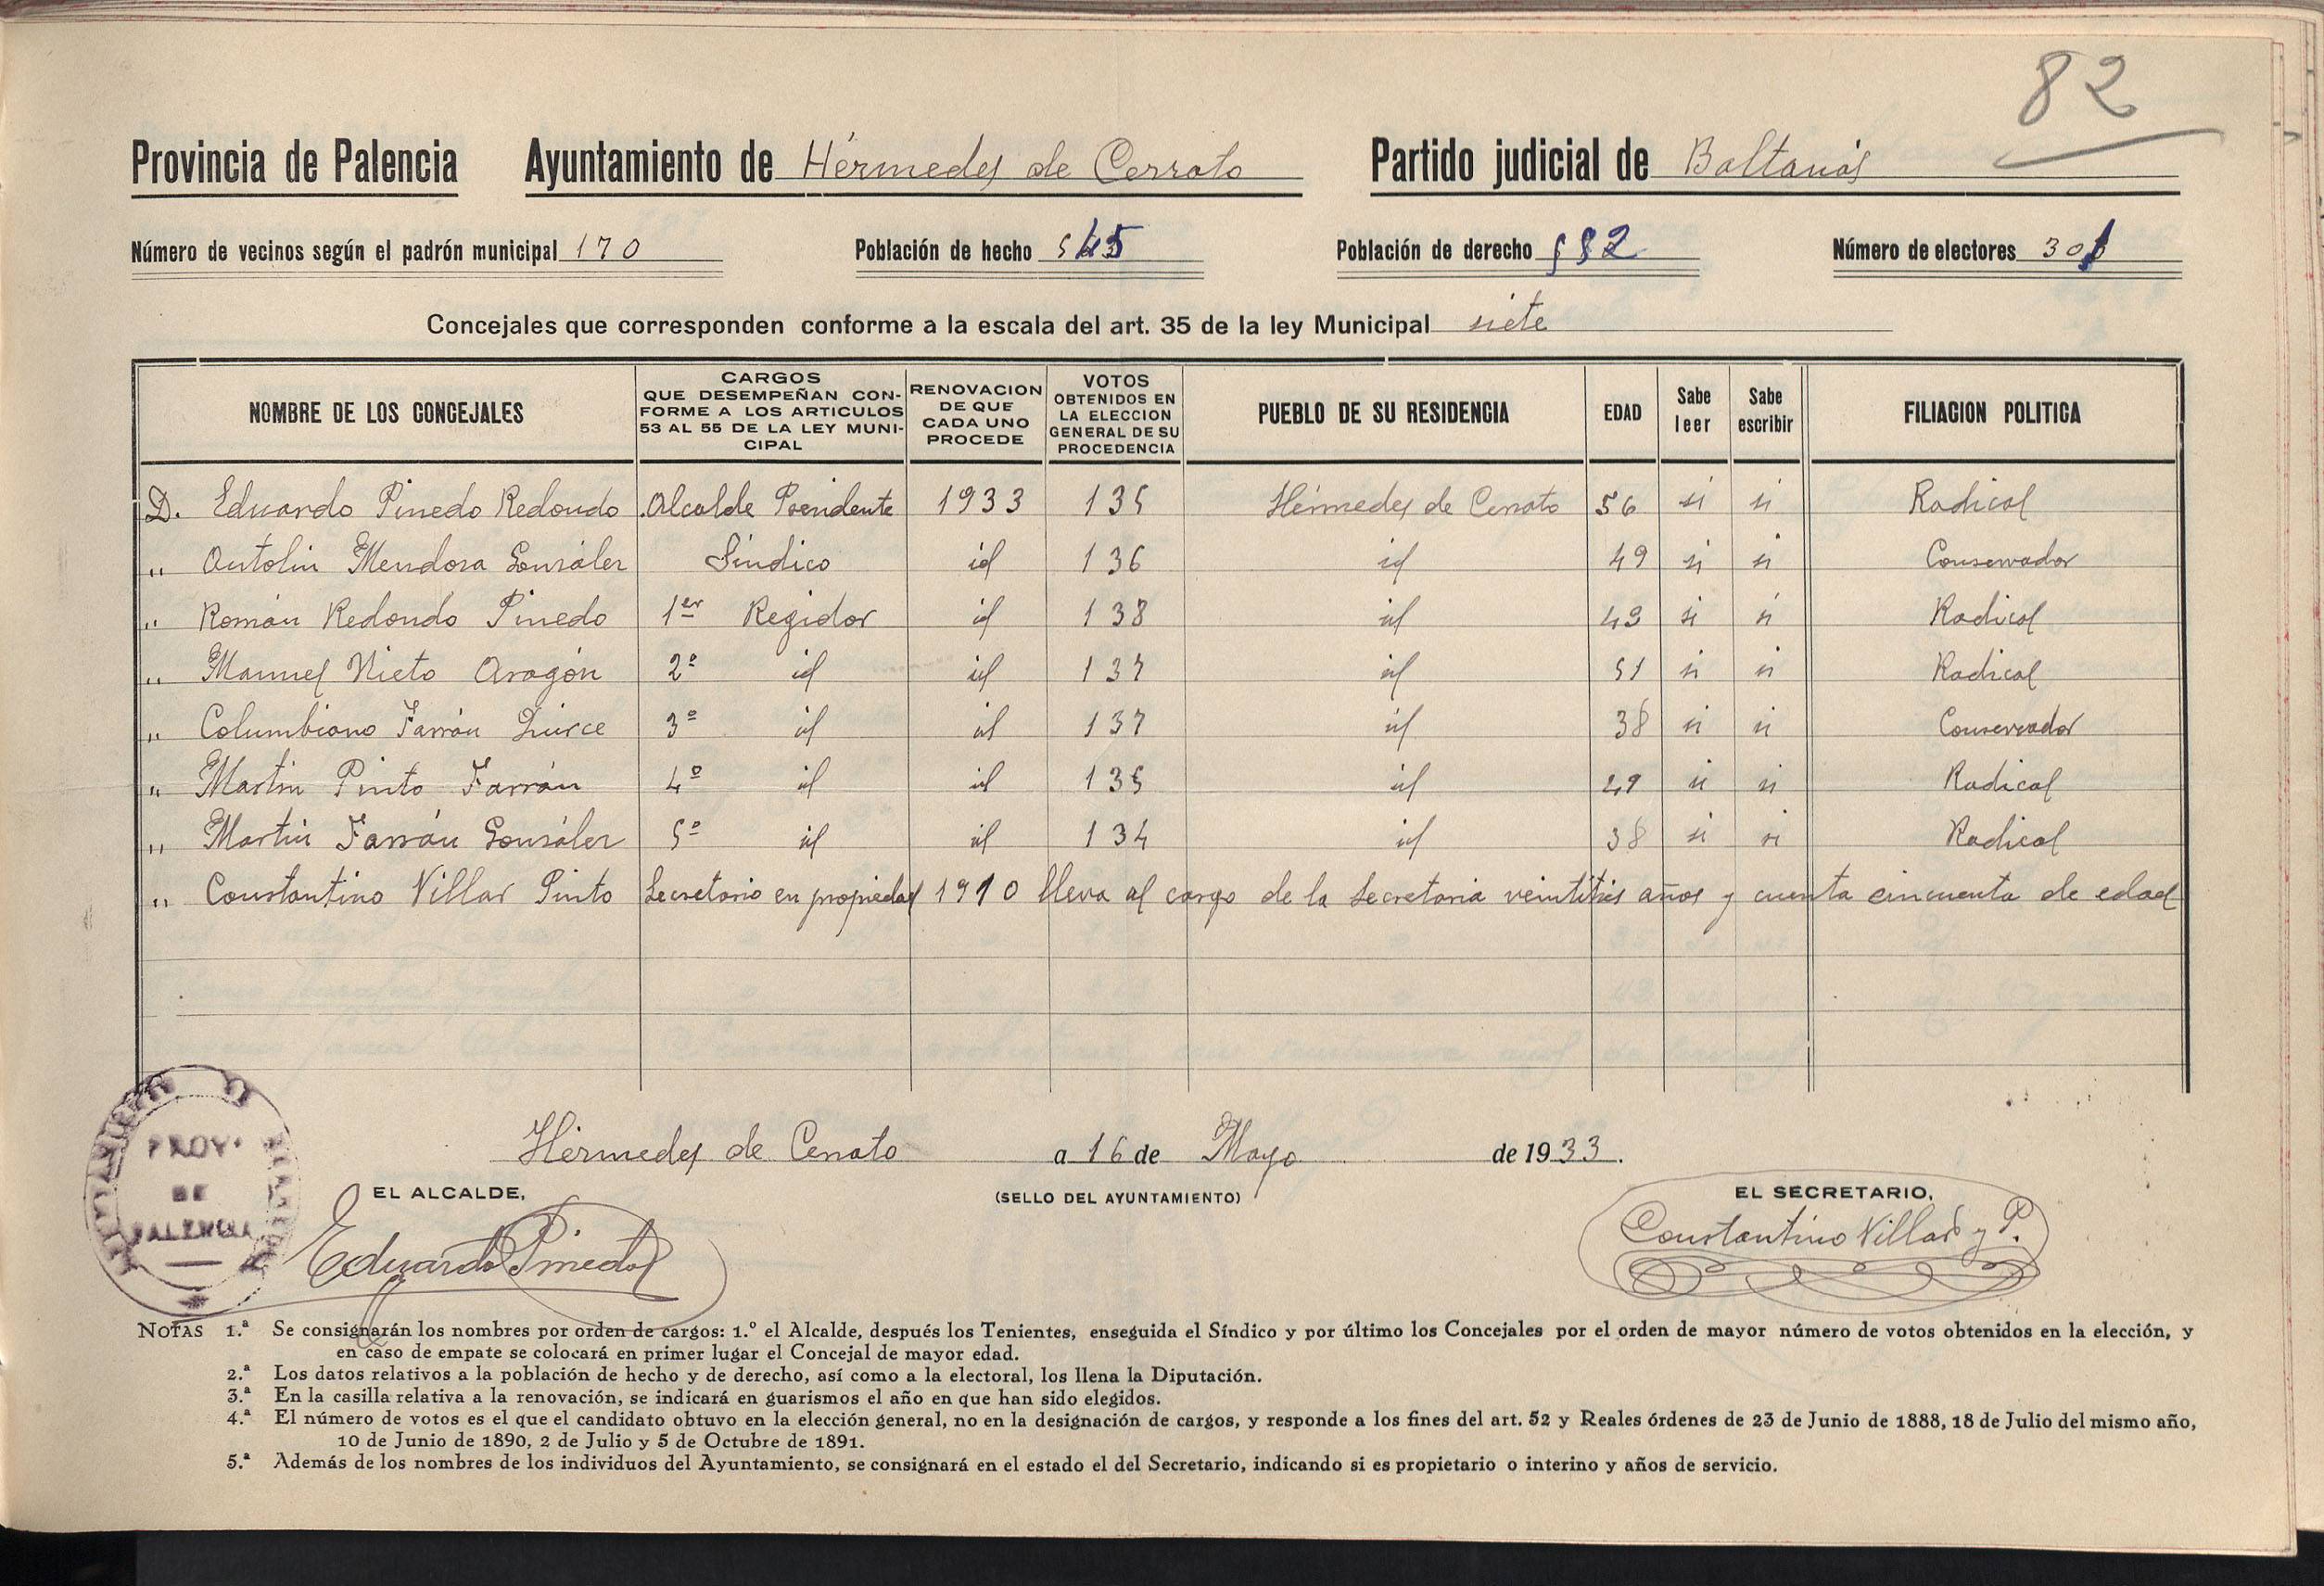 82
Provincia de Palencia Ayuntamiento de Hérmedes de Cerrato Partido judicial de Baltanás
Número de vecinos según el padrón municipal 170 Población de hecho 545 Población de derecho 582 Número de electores
Concejales que corresponden conforme a la escala del art. 35 de la ley Municipal siete
NOMBRE DE LOS CONCEJALES
CARGOS
QUE DESEMPEÑAN CON-
FORME A LOS ARTICULOS
53 AL 55 DE LA LEY MUNI-
CIPAL
RENOVACION
DE QUE
CADA UNO
PROCEDE
VOTOS
OBTENIDOS EN
LA ELECCION
GENERAL DE SU
PROCEDENCIA
PUEBLO DE SU RESIDENCIA
EDAD
Sabe
leer
Sabe
escribir
FILIACION POLITICA
D. Eduardo Pinedo Redondo Alcalde Presidente 1933 135 Hérmedes de Cerrato 56 si si Radical
" Antolin Mendoza González Síndico id 136 id 49 si si Conservador
" Román Redondo Pinedo 1er Regidor id 138 id 43 si si Radical
" Manuel Nieto Aragón 2º id id 137 id 51 si si Radical
" Columbiano Farrán Quirce 3º id id 137 id 38 si si Conservador
" Martin Pinto Farrán 4º id id 135 id si si Radical
" Martin Farrán González 5º id id 134 id 38 si si Radical
" Constantino Villar Pinto Secretario en propiedad 1910 lleva al cargo de la Secretaria veintitrés años y cuenta cincuenta de edad
PROV.
DE
PALENCIA
Hérmedes de Cerrato a 16 de Mayo de 1933.
EL ALCALDE, (SELLO DEL AYUNTAMIENTO) EL SECRETARIO,
Eduardo Pinedo Constantino Villar y P.
NOTAS 1.ª Se consignarán los nombres por orden de cargos: 1.º el Alcalde, después los Tenientes, enseguida el Síndico y por último los Concejales por el orden de mayor número de votos obtenidos en la elección, y
en caso de empate se colocará en primer lugar el Concejal de mayor edad.
2.ª Los datos relativos a la población de hecho y de derecho, así como a la electoral, los llena la Diputación.
3.ª En la casilla relativa a la renovación, se indicará en guarismos el año en que han sido elegidos.
4.ª El número de votos es el que el candidato obtuvo en la elección general, no en la designación de cargos, y responde a los fines del art. 52 y Reales órdenes de 23 de Junio de 1888, 18 de Julio del mismo año,
10 de Junio de 1890, 2 de Julio y 5 de Octubre de 1891.
5.ª Además de los nombres de los individuos del Ayuntamiento, se consignará en el estado el del Secretario, indicando si es propietario o interino y años de servicio.